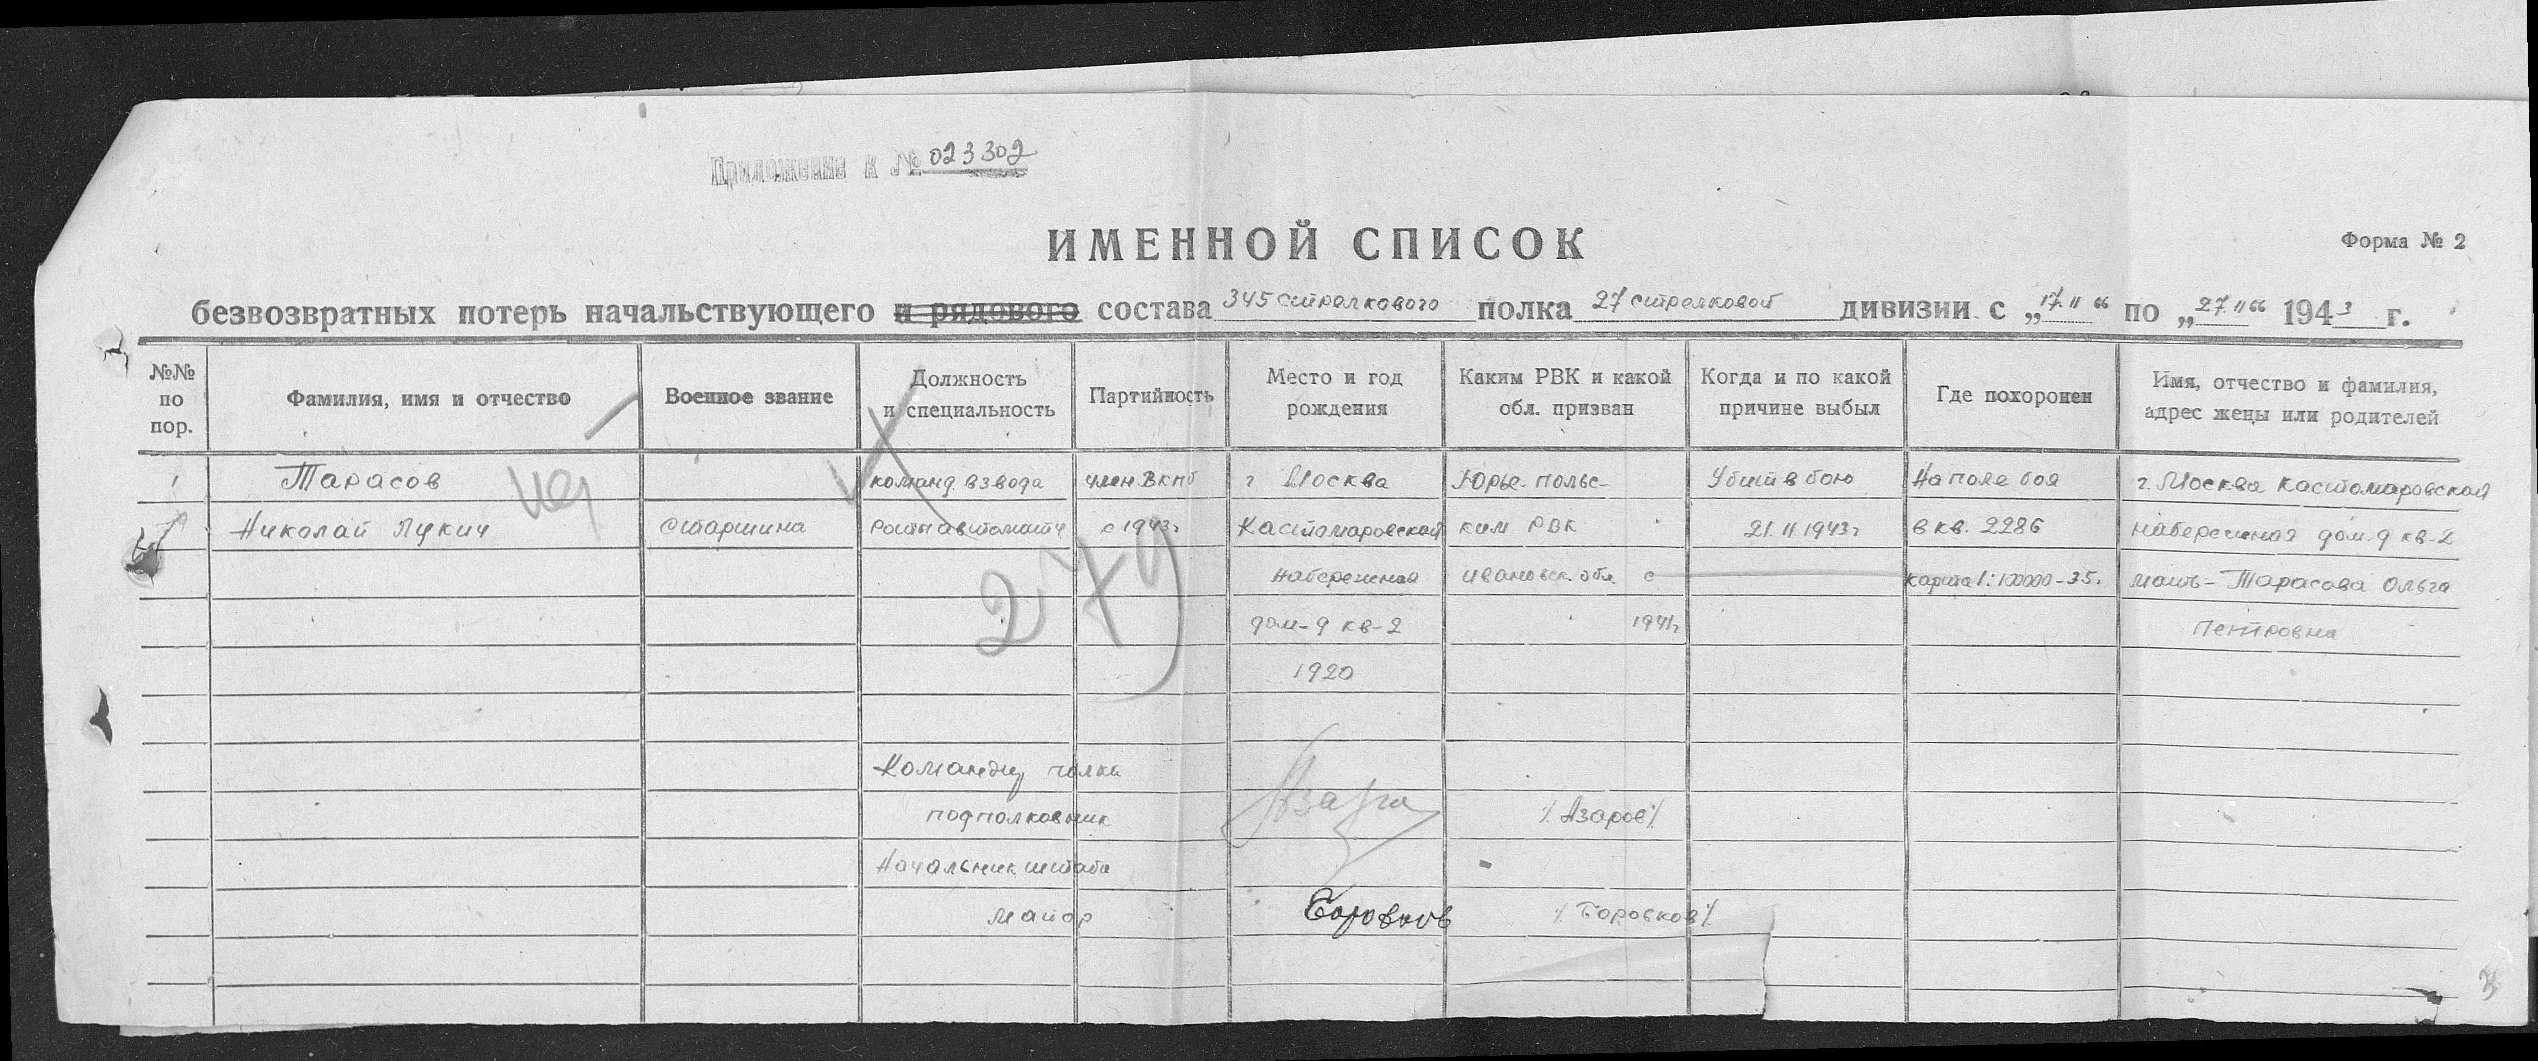 Приложение к № 023302
ИМЕННОЙ СПИСОК
Форма № 2
безвозвратных потерь начальствующего и рядового состава 345 стрелкового полка 27 стрелковой дивизии с „17.11“ по „27.11“ 1943 г.
№№ по пор.
Фамилия, имя и отчество
Военное звание
Должность и специальность
Партийность
Место и год рождения
Каким РВК и какой обл. призван
Когда и по какой причине выбыл
Где похоронен
Имя, отчество и фамилия, адрес жены или родителей
1
Тарасов
Николай Лукич
Старшина
команд. взвода
роты автоматч
член ВКПб
с 1943г
г Москва
Кастомаровской
набережная
дом-9 кв-2
1920
Юрье-польс-
ким РВК
Ивановск. обл. с
1941г
Убит в бою
21.11.1943г
На поле боя
в кв. 2286
карта 1:100000-35г.
г. Москва Кастомаровской
набережная дом-9 кв-2
мать-Тарасова Ольга
Петровна
279
Командир полка
подполковник
/Азаров/
Начальник штаба
майор
Боровков
/Боровков/